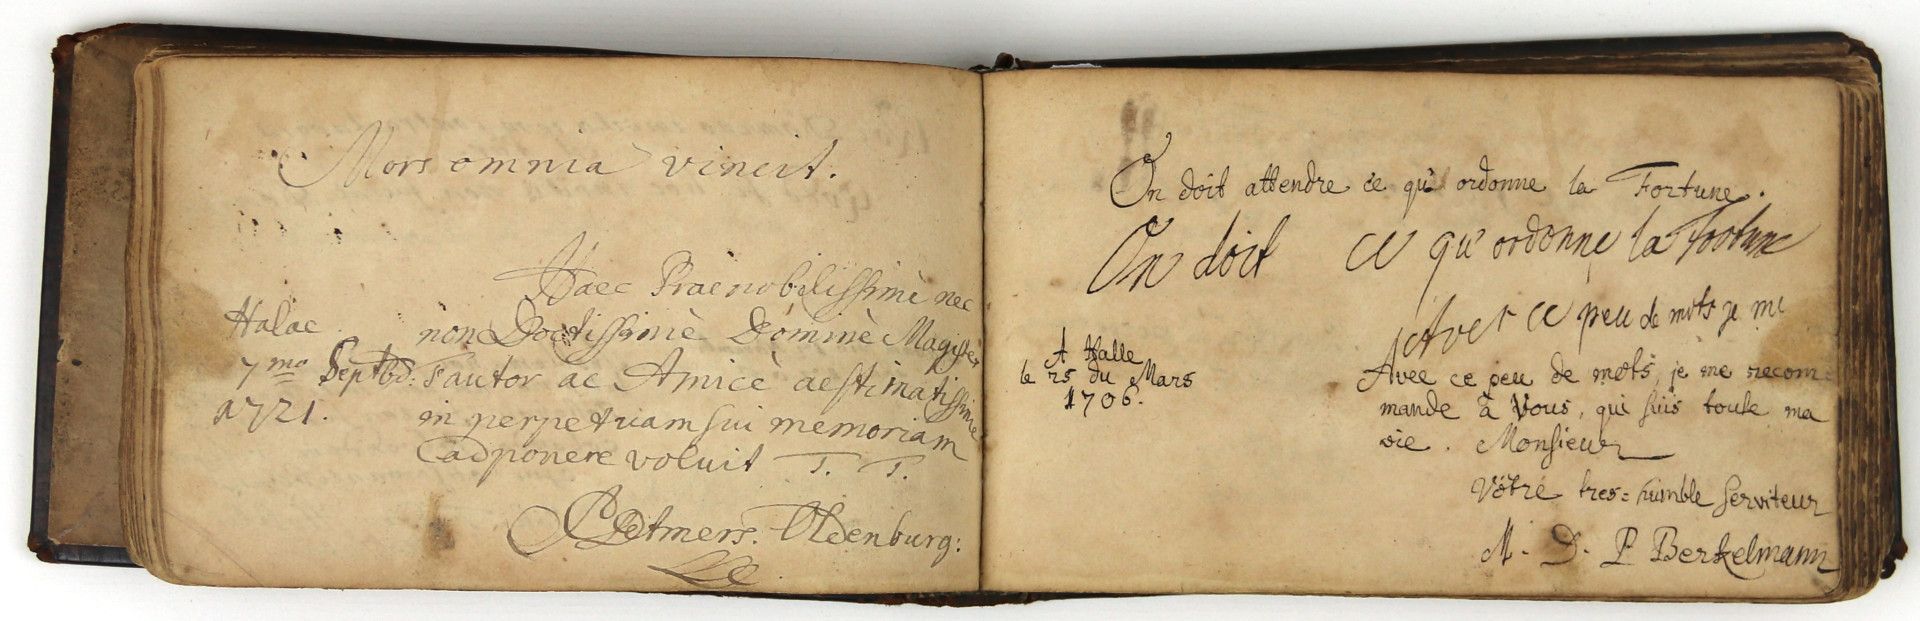 Mors omnia vincit.
Haec Praenobilissimè nec
non Doctissimè Dominè Magister
Fautor ac Amicè aestimatissime
in perpetuam sui memoriam
adponere voluit T. T.
Detmers. Oldenburg:
Halae
7mo Septbr:
1721.
On doit attendre ce qu' ordonne la Fortune.
On doit ce qu' ordonne la Fortune
Avec ce peu de mots je me
A Halle
le 25 du Mars
1706.
Avec ce peu de mots, je me recom-
mande à Vous, qui suis toute ma
vie. Monsieur
Vôtre tres-humble serviteur
M. D. P Berkelmann